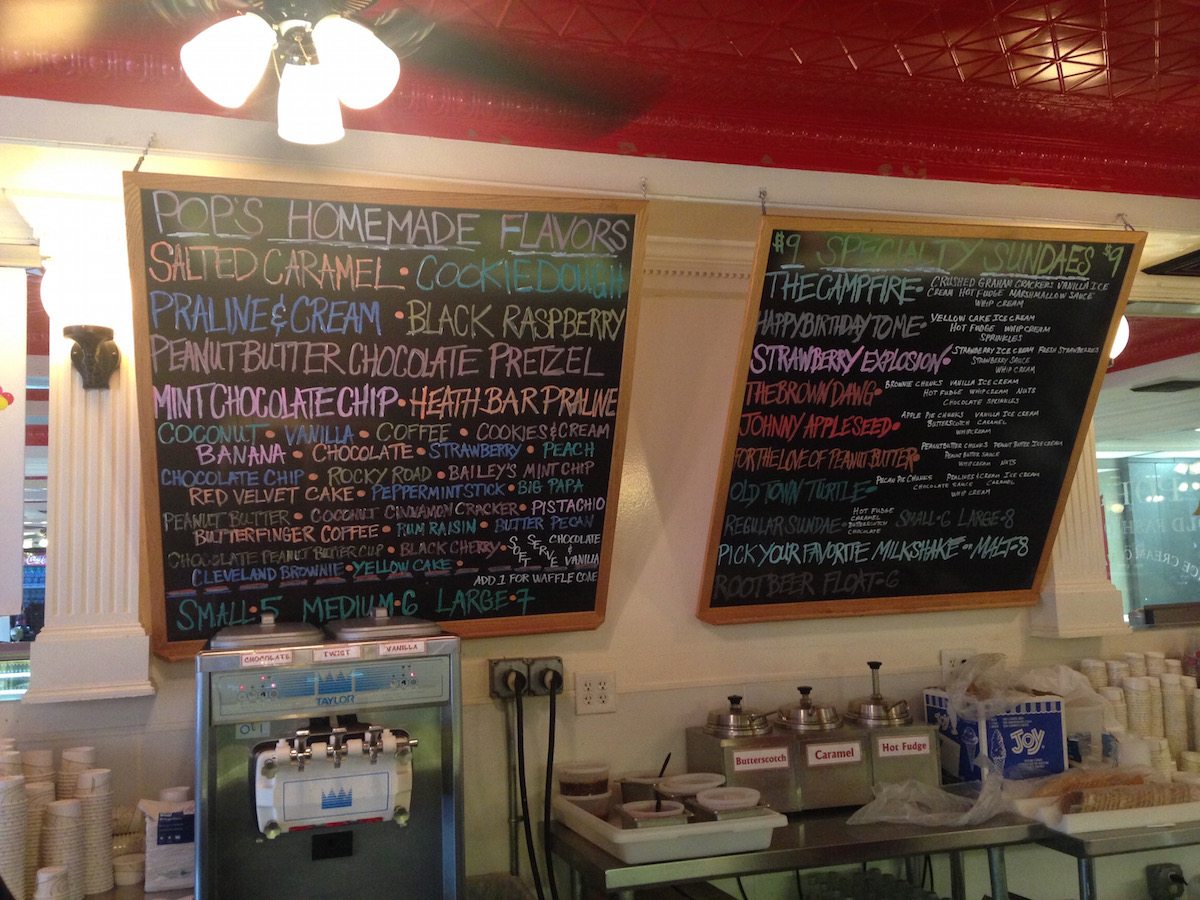 POP'S HOMEMADE FLAVORS
SALTED CARAMEL • COOKIE DOUGH
PRALINE & CREAM • BLACK RASPBERRY
PEANUT BUTTER CHOCOLATE PRETZEL
MINT CHOCOLATE CHIP • HEATH BAR PRALINE
COCONUT • VANILLA • COFFEE • COOKIES & CREAM
BANANA • CHOCOLATE • STRAWBERRY • PEACH
CHOCOLATE CHIP • ROCKY ROAD • BAILEY'S MINT CHIP
RED VELVET CAKE • PEPPERMINT STICK • BIG PAPA
PEANUT BUTTER • COCONUT CINNAMON CRACKER • PISTACHIO
BUTTERFINGER COFFEE • RUM RAISIN • BUTTER PECAN
CHOCOLATE PEANUT BUTTER CUP • BLACK CHERRY
CLEVELAND BROWNIE • YELLOW CAKE
SOFT SERVE CHOCOLATE & VANILLA
ADD 1 FOR WAFFLE CONE
SMALL • 5 MEDIUM • 6 LARGE • 7
$9 SPECIALTY SUNDAES $9
THE CAMPFIRE • CRUSHED GRAHAM CRACKERS VANILLA ICE
CREAM HOT FUDGE MARSHMALLOW SAUCE
WHIP CREAM
HAPPY BIRTHDAY TO ME • YELLOW CAKE ICE CREAM
HOT FUDGE WHIP CREAM
SPRINKLES
STRAWBERRY EXPLOSION • STRAWBERRY ICE CREAM FRESH STRAWBERRIES
STRAWBERRY SAUCE
WHIP CREAM
THE BROWN DAWG • BROWNIE CHUNKS VANILLA ICE CREAM
HOT FUDGE WHIP CREAM NUTS
CHOCOLATE SPRINKLES
JOHNNY APPLESEED • APPLE PIE CHUNKS VANILLA ICE CREAM
BUTTERSCOTCH CARAMEL
WHIPCREAM
FOR THE LOVE OF PEANUT BUTTER • PEANUT BUTTER CHUNKS PEANUT BUTTER ICE CREAM
PEANUT BUTTER SAUCE
WHIP CREAM NUTS
OLD TOWN TURTLE • PECAN PIE CHUNKS PRALINES & CREAM ICE CREAM
CHOCOLATE SAUCE CARAMEL
WHIP CREAM
REGULAR SUNDAE • HOT FUDGE
CARAMEL
BUTTERSCOTCH
CHOCOLATE
SMALL • 6 LARGE • 8
PICK YOUR FAVORITE MILKSHAKE OR MALT • 8
ROOT BEER FLOAT • 6
CHOCOLATE
TWIST
VANILLA
TAYLOR
Butterscotch
Caramel
Hot Fudge
JOY